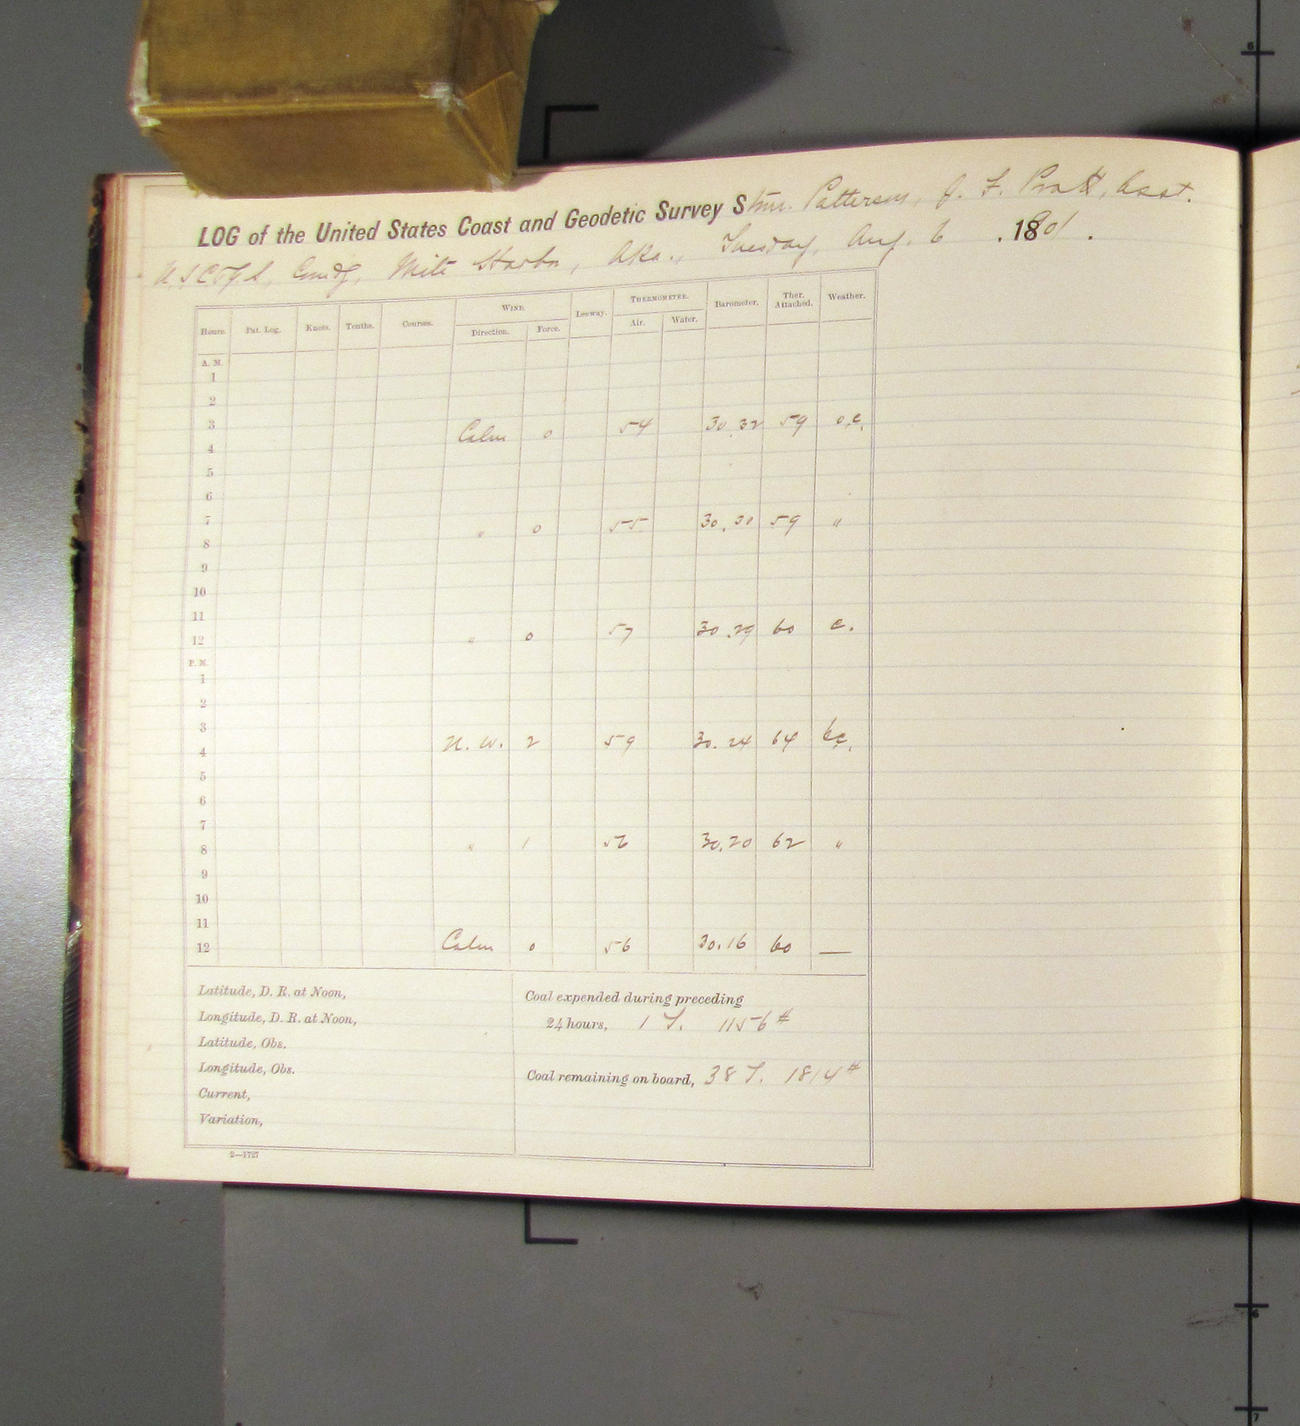 LOG of the United States Coast and Geodetic Survey Stmr. Patterson, J. F. Pratt, Asst.
U.S.C. & G.S., Comdg, Harbor, Aka., Tuesday, Aug. 6 , 1801 .
Hours. Pat. Log. Knots. Tenths. Courses. WIND. Leeway. THERMOMETER. Barometer. Ther. Attached. Weather.
Direction. Force. Air. Water.
A. M.
1
2
3
4 Calm 0 54 30.32 59 o.c.
5
6
7
8 " 0 55 30.30 59 "
9
10
11
12 " 0 57 30.29 60 c.
P. M.
1
2
3
4 N. W. 2 59 30.24 64 bc.
5
6
7
8 " 1 56 30.20 62 "
9
10
11
12 Calm 0 56 30.16 60 —
Latitude, D. R. at Noon,
Longitude, D. R. at Noon,
Latitude, Obs.
Longitude, Obs.
Current,
Variation,
Coal expended during preceding
24 hours, 1 T. 1156 #
Coal remaining on board, 38 T. 1814 #
2—1727
6
6
7